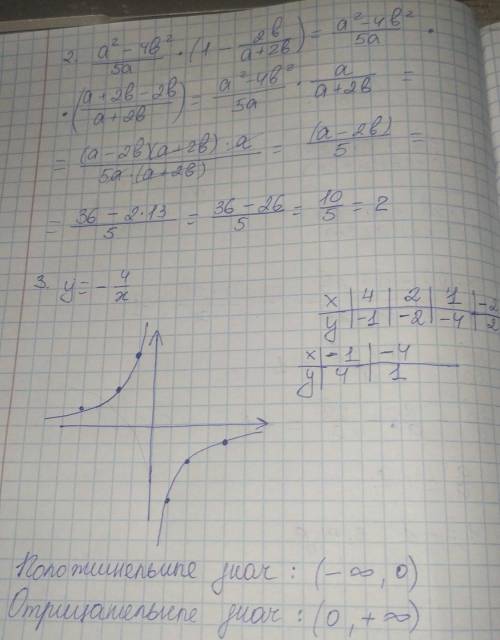 2. (a² - 4b²)/(5a) · (1 - 2b/(a+2b)) = (a² - 4b²)/(5a) ·
· ((a+2b-2b)/(a+2b)) = (a² - 4b²)/(5a) · a/(a+2b) =
= ((a-2b)(a+2b)·a)/(5a·(a+2b)) = (a-2b)/5 =
= (36-2·13)/5 = (36-26)/5 = 10/5 = 2
3. y = -4/x
x | 4 | 2 | 1 | -2
y | -1 | -2 | -4 | 2
x | -1 | -4
y | 4 | 1
Положительные знач : (-∞, 0)
Отрицательные знач : (0, +∞)